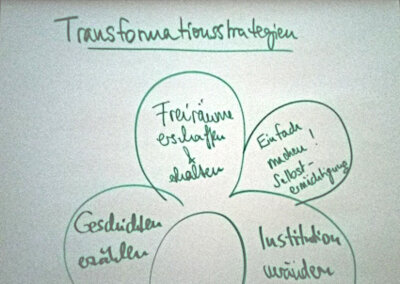 Transformationsstrategien
Freiräume
erschaffen
&
erhalten
Einfach
machen!
Selbst-
ermächtigung
Geschichten
erzählen
Institution
verändern